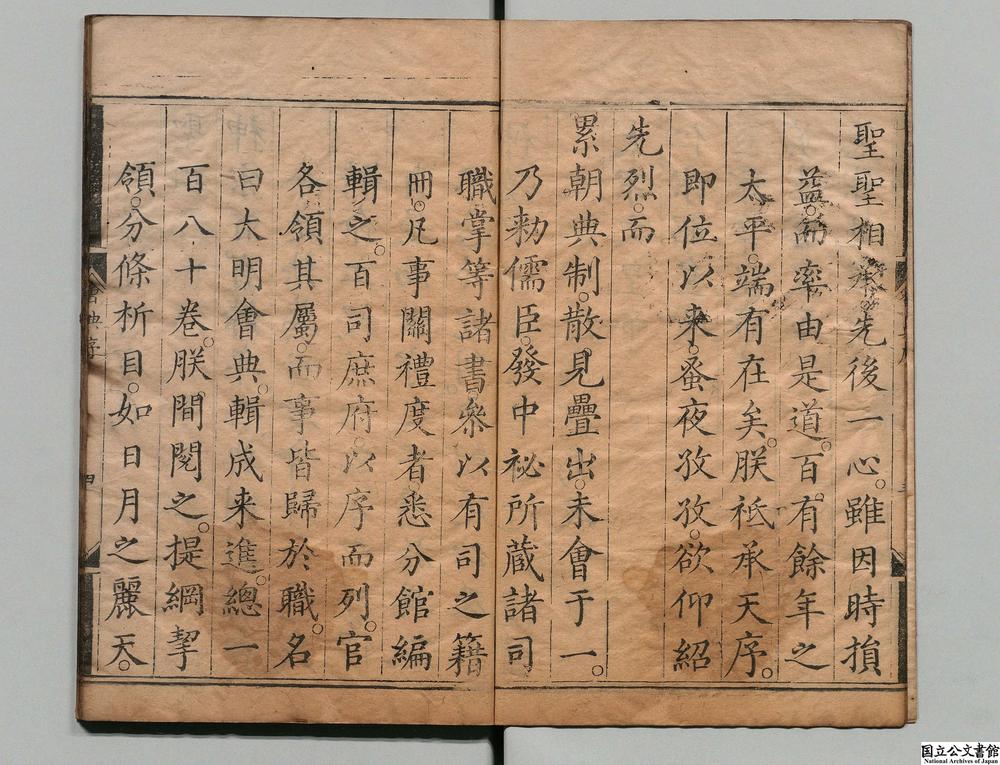 聖聖相承先後一心。雖因時損
益。而率由是道。百有餘年之
太平。端有在矣。朕祗承天序。
即位以来。蚤夜孜孜。欲仰紹
先烈。而
累朝典制。散見疊出。未會于一。
乃勑儒臣。發中祕所蔵諸司
職掌等諸書。參以有司之籍
冊。凡事關禮度者。悉分館編
輯之。百司庶府。以序而列。官
各領其屬。而事皆歸於職。名
曰大明會典。輯成来進。總一
百八十卷。朕間閱之。提綱挈
領。分條析目。如日月之麗天。
會典序
四
国立公文書館
National Archives of Japan